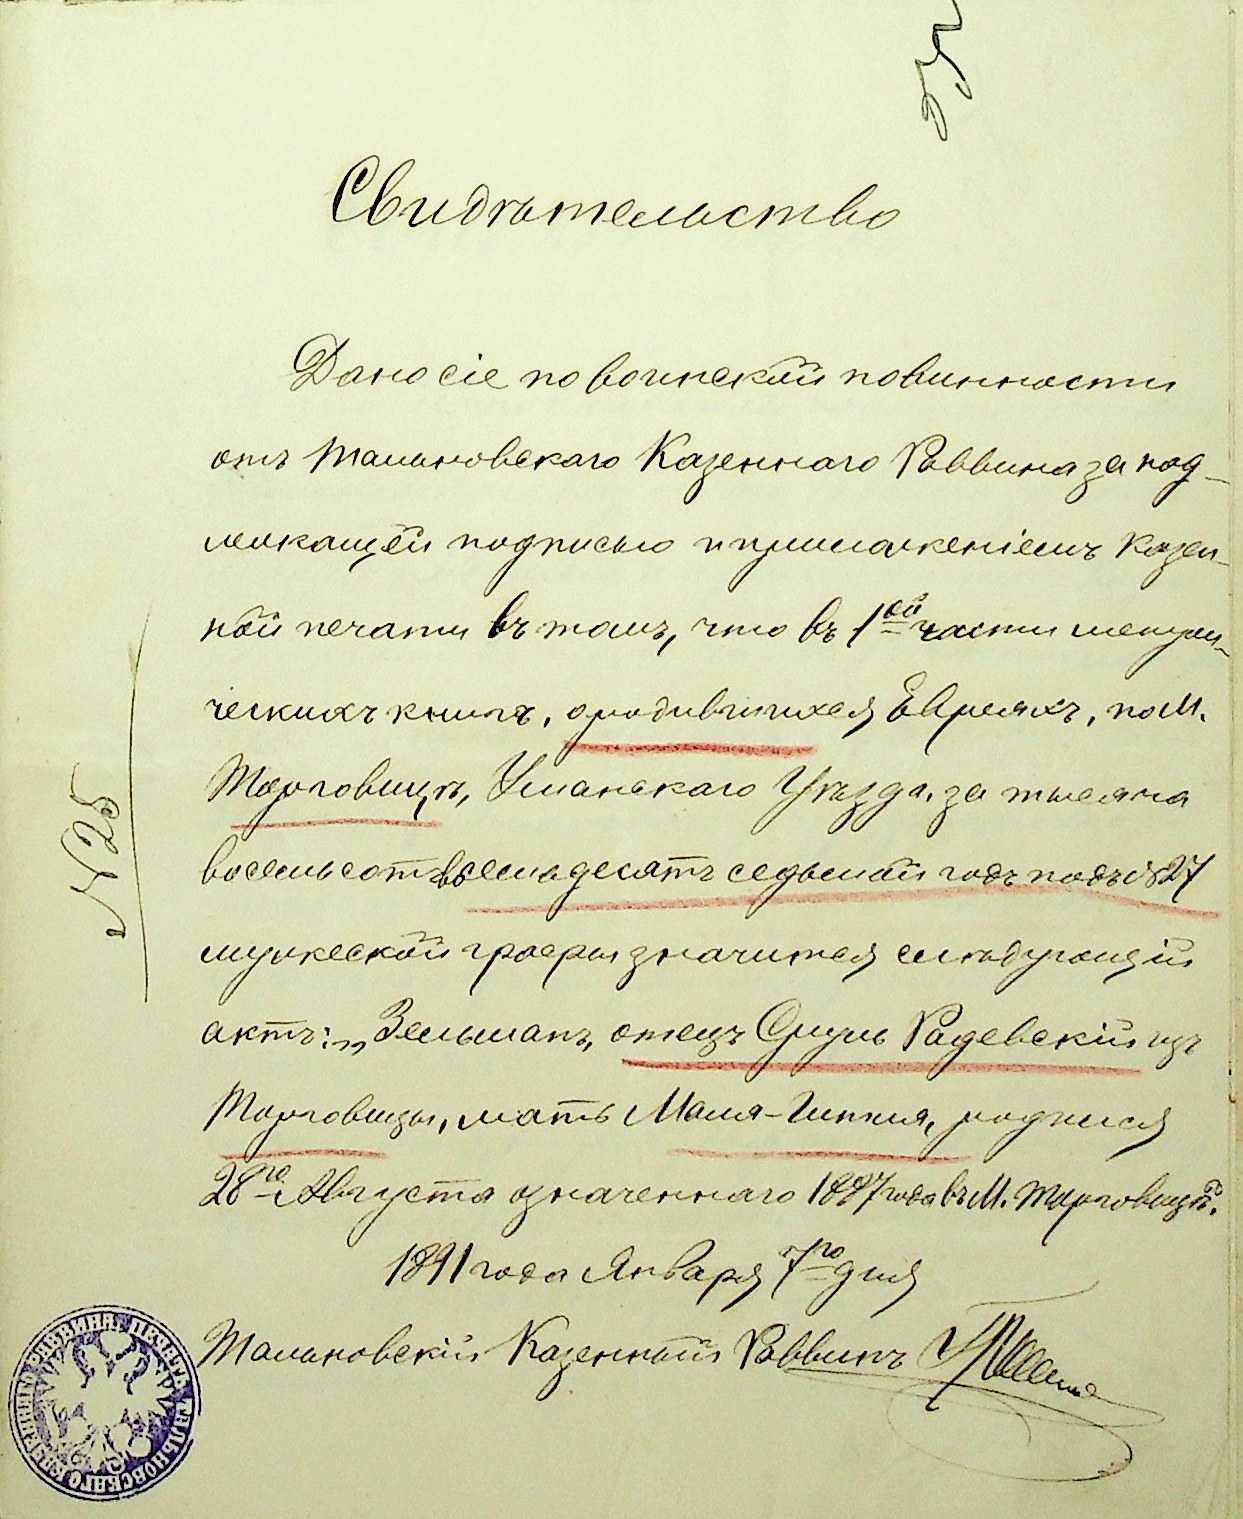 Свидѣтельство
Дано сіе по воинской повинности
отъ Тальновскаго Казеннаго Раввина за под-
лежащей подписью и приложеніемъ казен-
ной печати въ томъ, что въ 1ой части метри-
ческихъ книгъ, о родившихся Евреяхъ, по М.
Торговицѣ, Уманскаго Уѣзда, за тысяча
восемьсотъ восемьдесятъ седьмой годъ подъ № 27
мужеской графы значится слѣдующій
актъ: „Зельманъ, отецъ Сруль Радевскій изъ
Торговицы, мать Маля-Гитля, родился
28го Августа означеннаго 1887 года въ М. Торговицѣ".
1891 года Января 7го дня
Тальновскій Казенный Раввинъ
№ 25
ПЕЧАТЬ ТАЛЬНОВСКАГО КАЗЕННАГО РАВВИНА